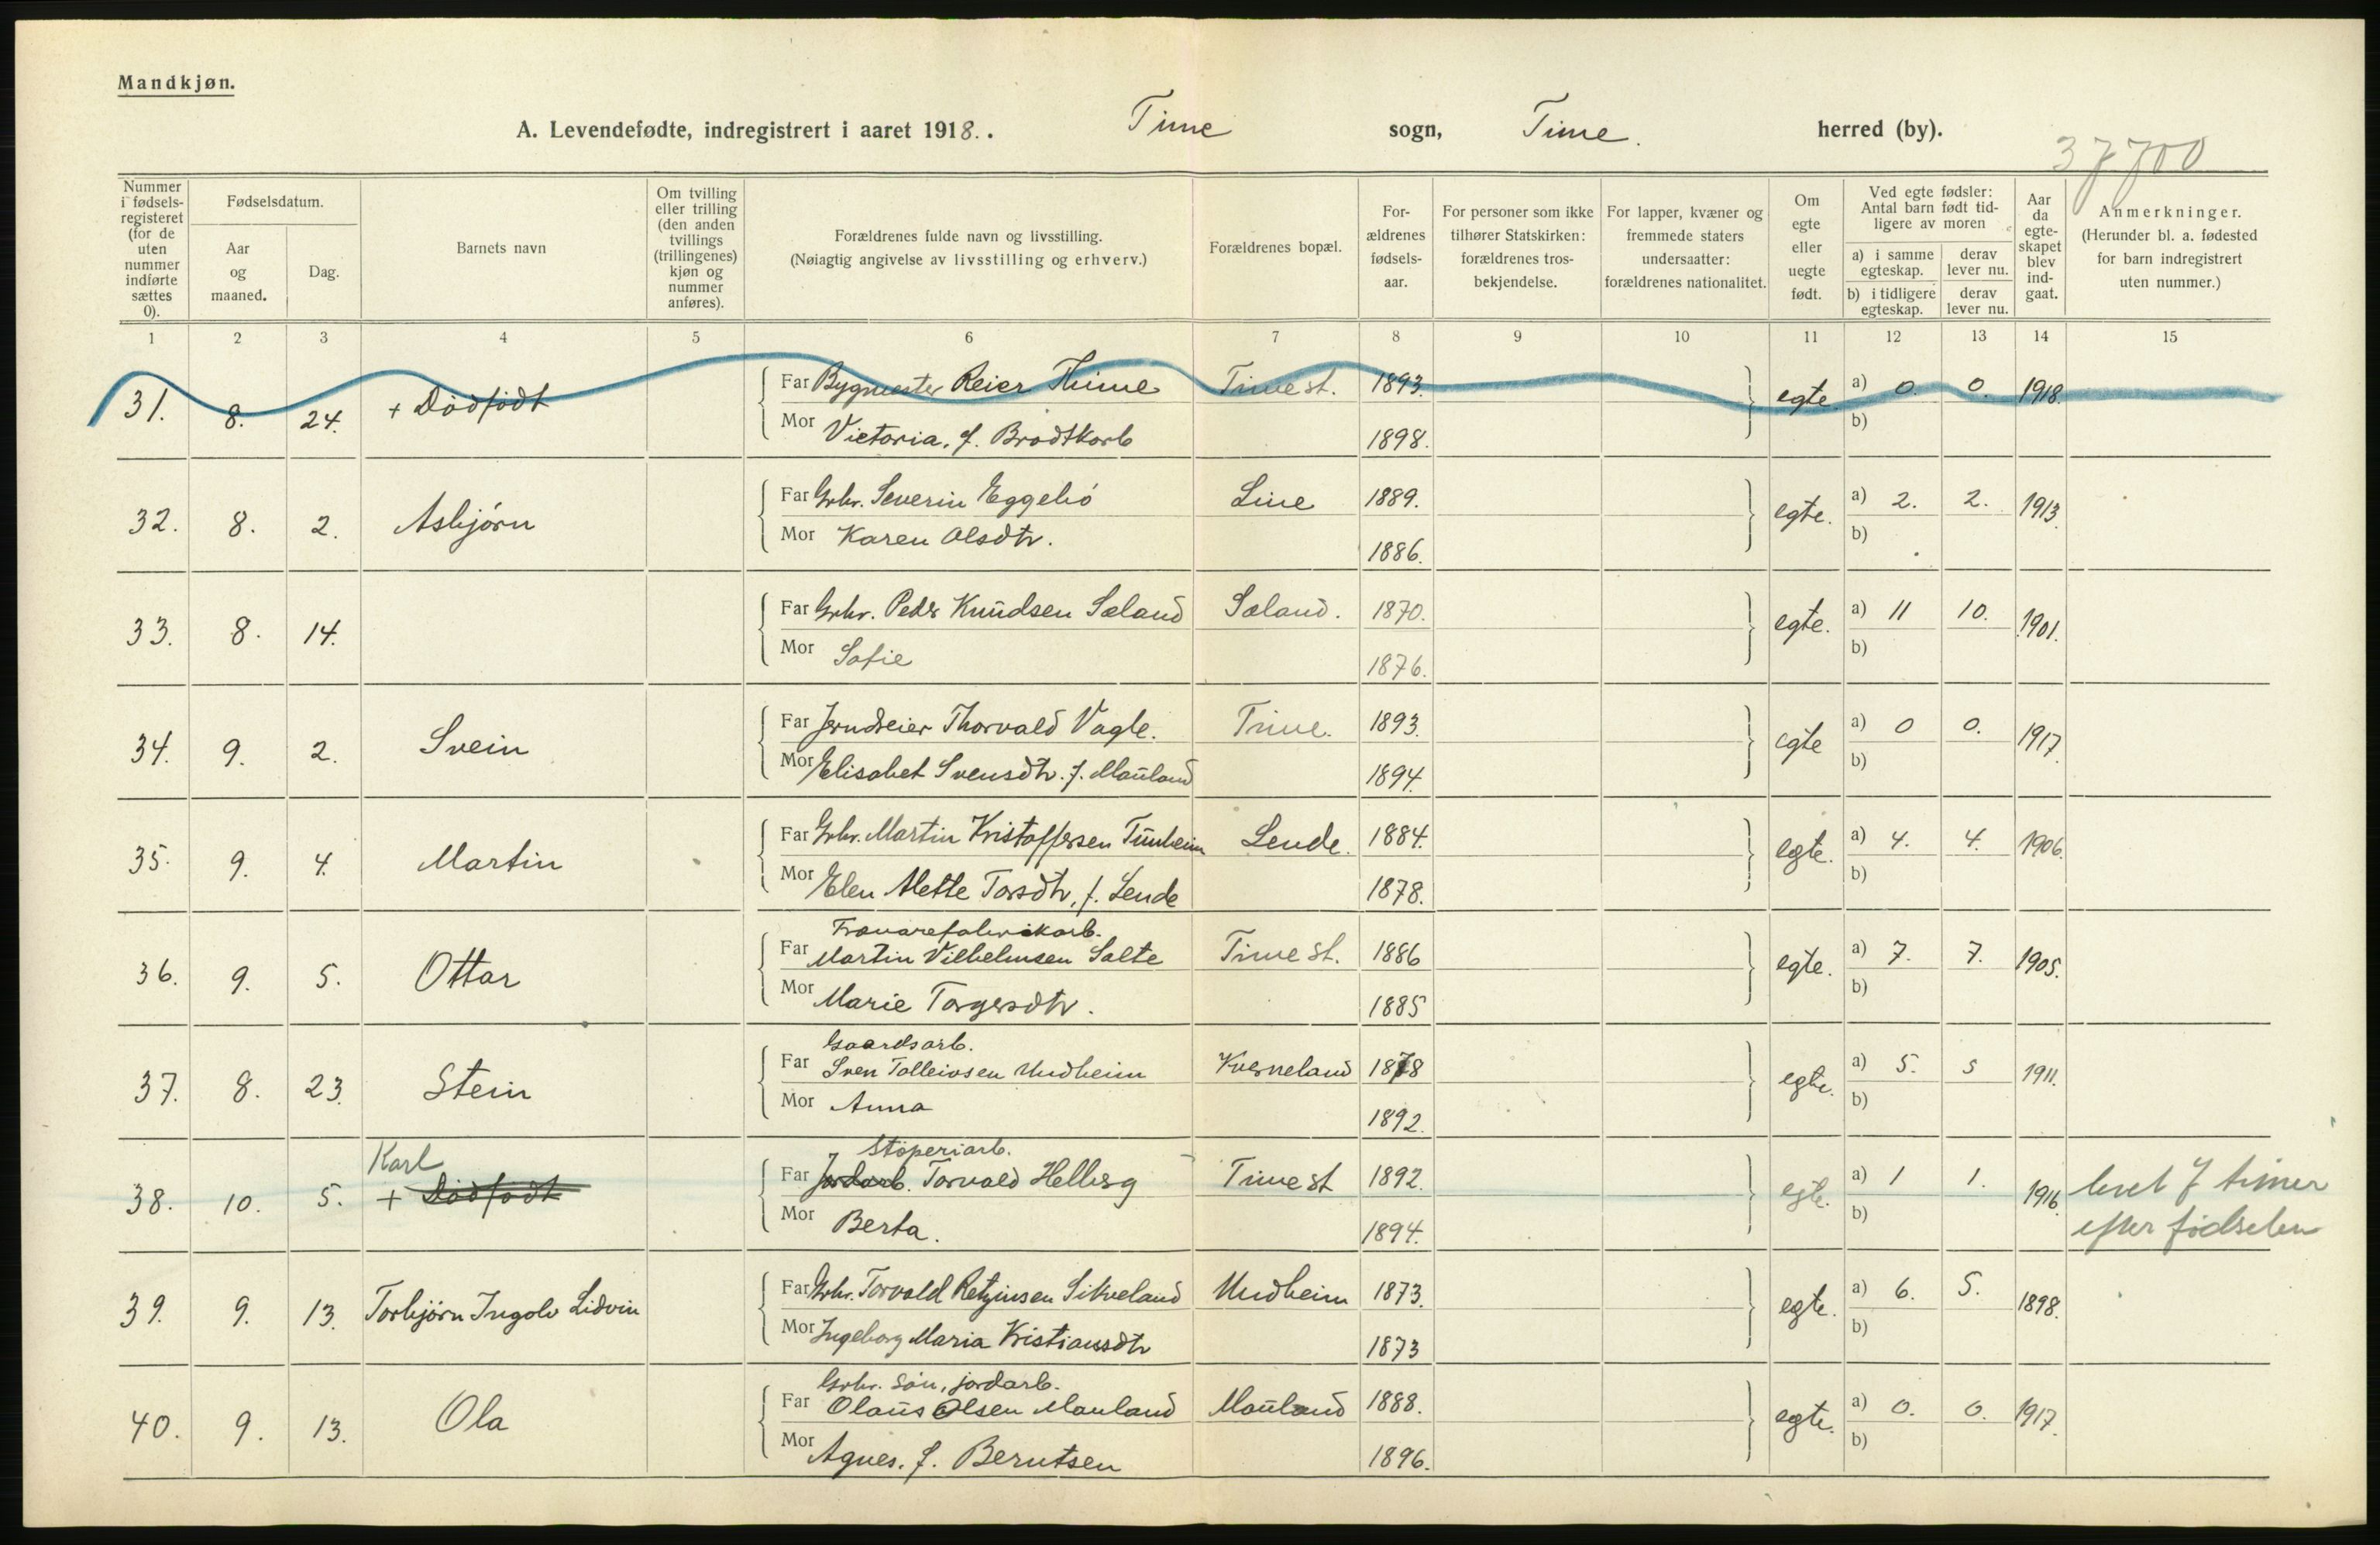 Mandkjøn.
A. Levendefødte, indregistrert i aaret 1918. . Time sogn, Time. herred (by).
37700
Nummer i fødsels-registeret (for de uten nummer indførte sættes 0).
Fødselsdatum.
Aar og maaned.
Dag.
Barnets navn
Om tvilling eller trilling (den anden tvillings (trillingenes) kjøn og nummer anføres).
Forældrenes fulde navn og livsstilling.
(Nøiagtig angivelse av livsstilling og erhverv.)
Forældrenes bopæl.
For-ældrenes fødsels-aar.
For personer som ikke tilhører Statskirken: forældrenes tros-bekjendelse.
For lapper, kvæner og fremmede staters undersaatter: forældrenes nationalitet.
Om egte eller uegte født.
Ved egte fødsler: Antal barn født tid-ligere av moren
a) i samme egteskap.
derav lever nu.
b) i tidligere egteskap.
derav lever nu.
Aar da egte-skapet blev ind-gaat.
Anmerkninger.
(Herunder bl. a. fødested for barn indregistrert uten nummer.)
1 2 3 4 5 6 7 8 9 10 11 12 13 14 15
31. 8. 24. + Dødfødt Far Bygmester Reier Thime Time st. 1893. egte. a) 0. 0. 1918.
Mor Victoria, f. Brodtkorb 1898. b)
32. 8. 2. Asbjørn Far Grbr. Severin Eggebø Line 1889. egte. a) 2. 2. 1913.
Mor Karen Olsdtr. 1886. b)
33. 8. 14. Far Grbr. Peder Knudsen Sæland Sæland. 1870. egte. a) 11 10. 1901.
Mor Sofie 1876. b)
34. 9. 2. Svein Far Thorvald Vagle. Time. 1893. egte a) 0 0. 1917.
Mor Elisabet Svensdtr. f. Mauland 1894. b)
35. 9. 4. Martin Far Grbr. Martin Kristoffersen Tunheim Lende. 1884. egte. a) 4. 4. 1906.
Mor Elen Mette Torsdtr, f. Lende 1878. b)
Trævarefabrikarb.
36. 9. 5. Ottar Far Martin Vilhelmsen Salte Time st. 1886 egte. a) 7. 7. 1905.
Mor Marie Torgersdtr. 1885 b)
Gaardsarb.
37. 8. 23. Stein Far Sven Tolleivsen Undheim Kverneland 1878 egte. a) 5. 5 1911.
Mor Anna 1892. b)
Karl Støperiarb.
38. 10. 5. + Dødfødt Far Jordarb. Torvald Helberg Time st 1892. egte. a) 1 1. 1916. levet 7 timer
Mor Berta. 1894. b) efter fødselen
39. 9. 13. Torbjørn Ingolv Lidvin Far Grbr. Torvald Retginsen Sikveland Undheim 1873. egte. a) 6. 5. 1898.
Mor Ingeborg Maria Kristiansdtr 1873 b)
Grbr. søn, jordarb.
40. 9. 13. Ola Far Olaus Olsen Mauland Mauland 1888. egte. a) 0. 0. 1917.
Mor Agnes. f. Berntsen 1896. b)